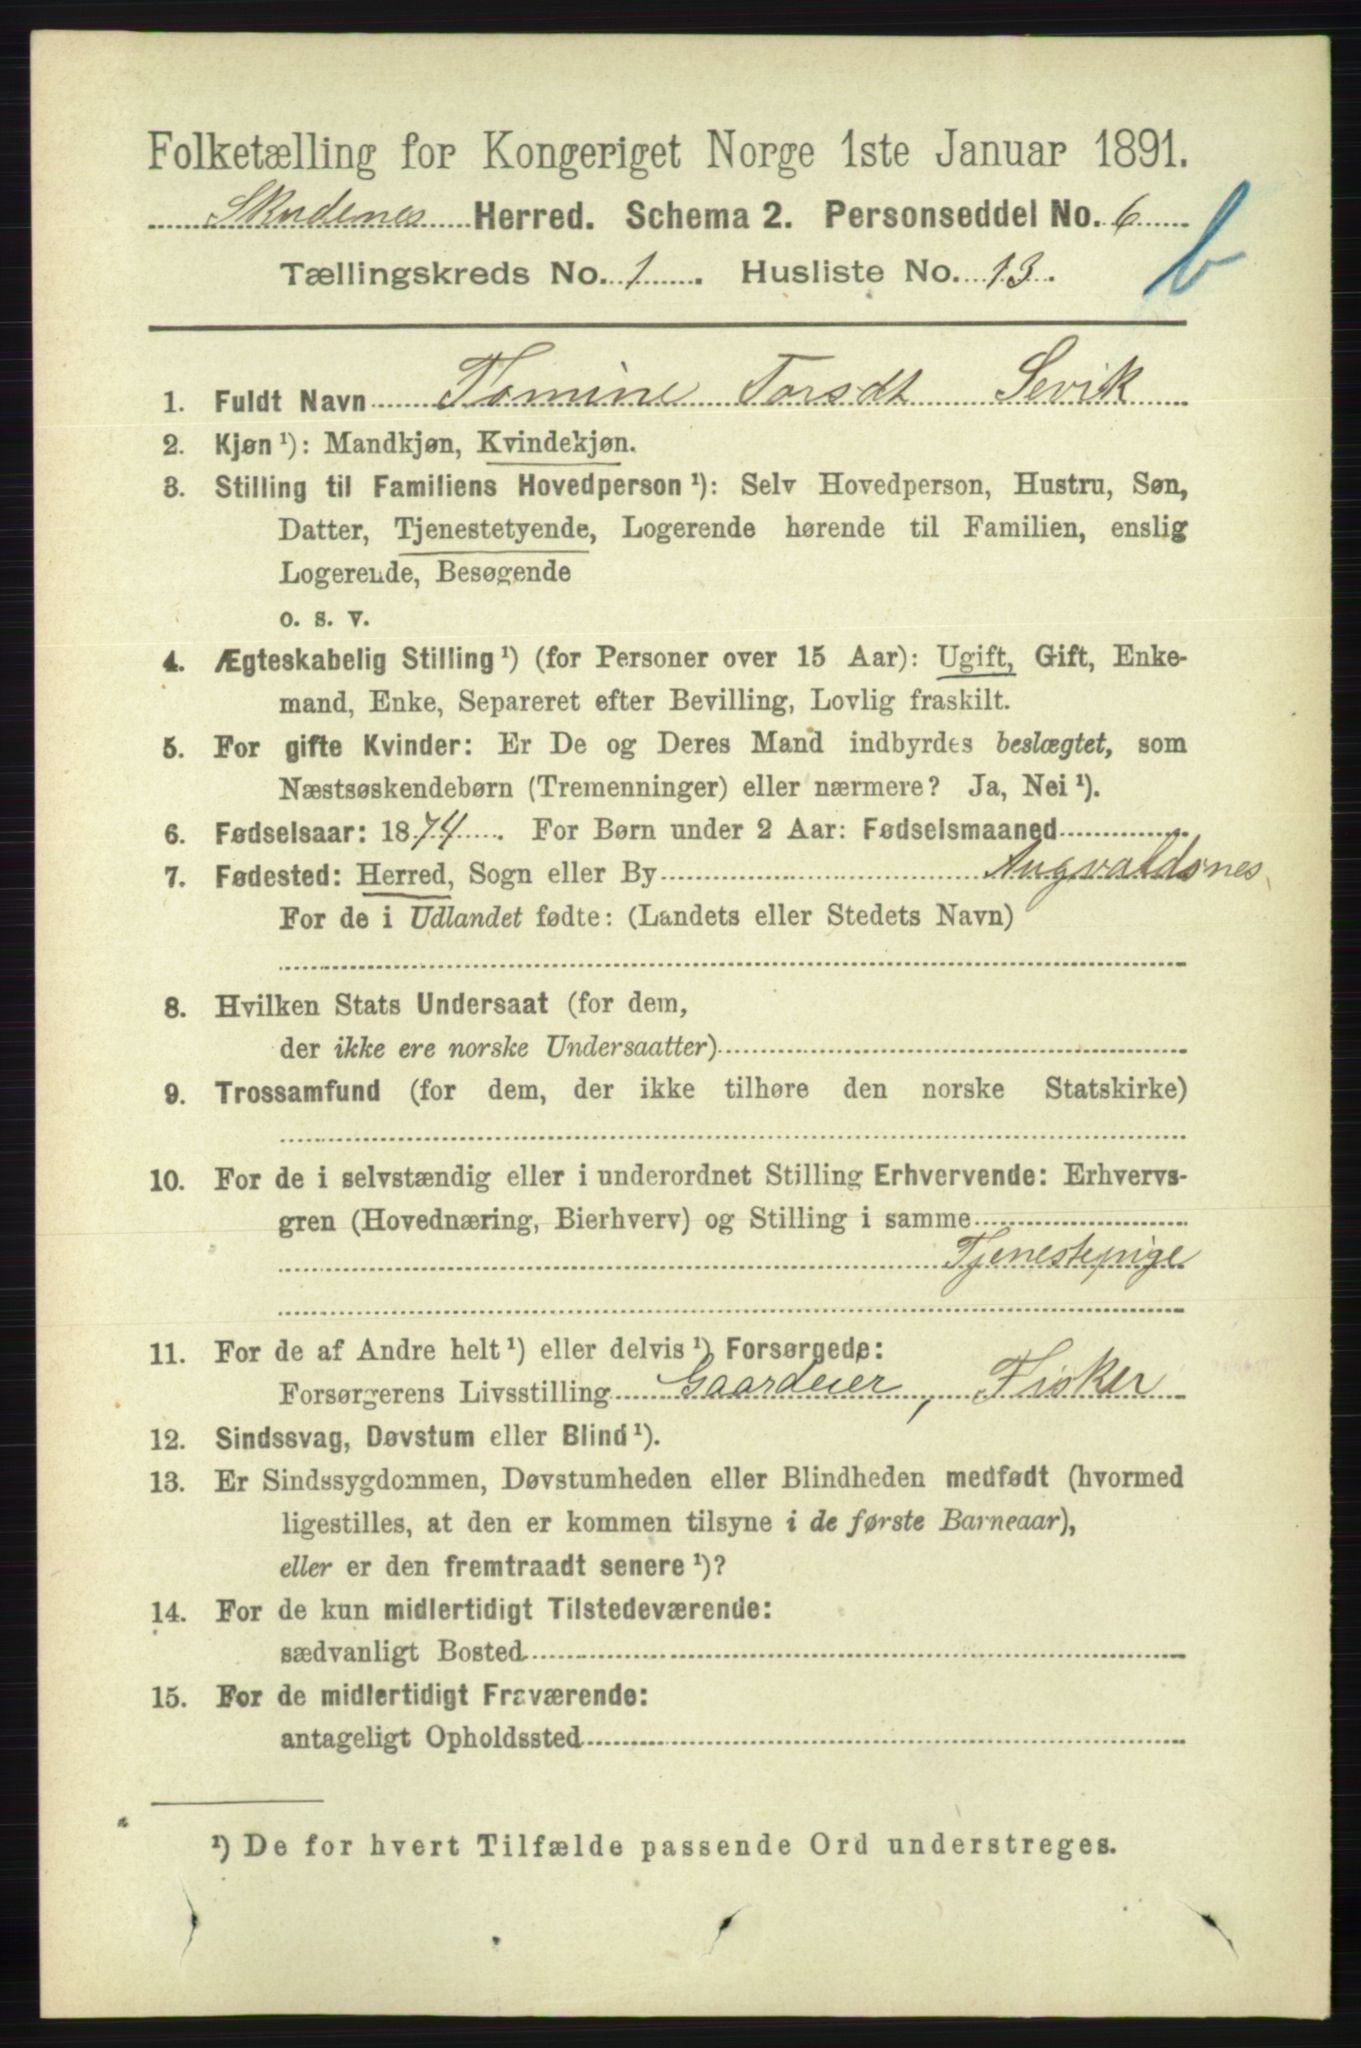 Folketælling for Kongeriget Norge 1ste Januar 1891.
Skudenes Herred. Schema 2. Personseddel No. 6
b
Tællingskreds No. 1. Husliste No. 13.
1. Fuldt Navn Tomine Torsdt Sevik
2. Kjøn ¹): Mandkjøn, Kvindekjøn.
3. Stilling til Familiens Hovedperson ¹): Selv Hovedperson, Hustru, Søn,
Datter, Tjenestetyende, Logerende hørende til Familien, enslig
Logerende, Besøgende
o. s. v.
4. Ægteskabelig Stilling ¹) (for Personer over 15 Aar): Ugift, Gift, Enke-
mand, Enke, Separeret efter Bevilling, Lovlig fraskilt.
5. For gifte Kvinder: Er De og Deres Mand indbyrdes beslægtet, som
Næstsøskendebørn (Tremenninger) eller nærmere? Ja, Nei ¹).
6. Fødselsaar: 1874. For Børn under 2 Aar: Fødselsmaaned
7. Fødested: Herred, Sogn eller By Augvaldsnes
For de i Udlandet fødte: (Landets eller Stedets Navn)
8. Hvilken Stats Undersaat (for dem,
der ikke ere norske Undersaatter)
9. Trossamfund (for dem, der ikke tilhøre den norske Statskirke)
10. For de i selvstændig eller i underordnet Stilling Erhvervende: Erhvervs-
gren (Hovednæring, Bierhverv) og Stilling i samme
Tjenestepige
11. For de af Andre helt ¹) eller delvis ¹) Forsørgede:
Forsørgerens Livsstilling Gaardeier, Fisker
12. Sindssvag, Døvstum eller Blind ¹).
13. Er Sindssygdommen, Døvstumheden eller Blindheden medfødt (hvormed
ligestilles, at den er kommen tilsyne i de første Barneaar),
eller er den fremtraadt senere ¹)?
14. For de kun midlertidigt Tilstedeværende:
sædvanligt Bosted
15. For de midlertidigt Fraværende:
antageligt Opholdssted
¹) De for hvert Tilfælde passende Ord understreges.